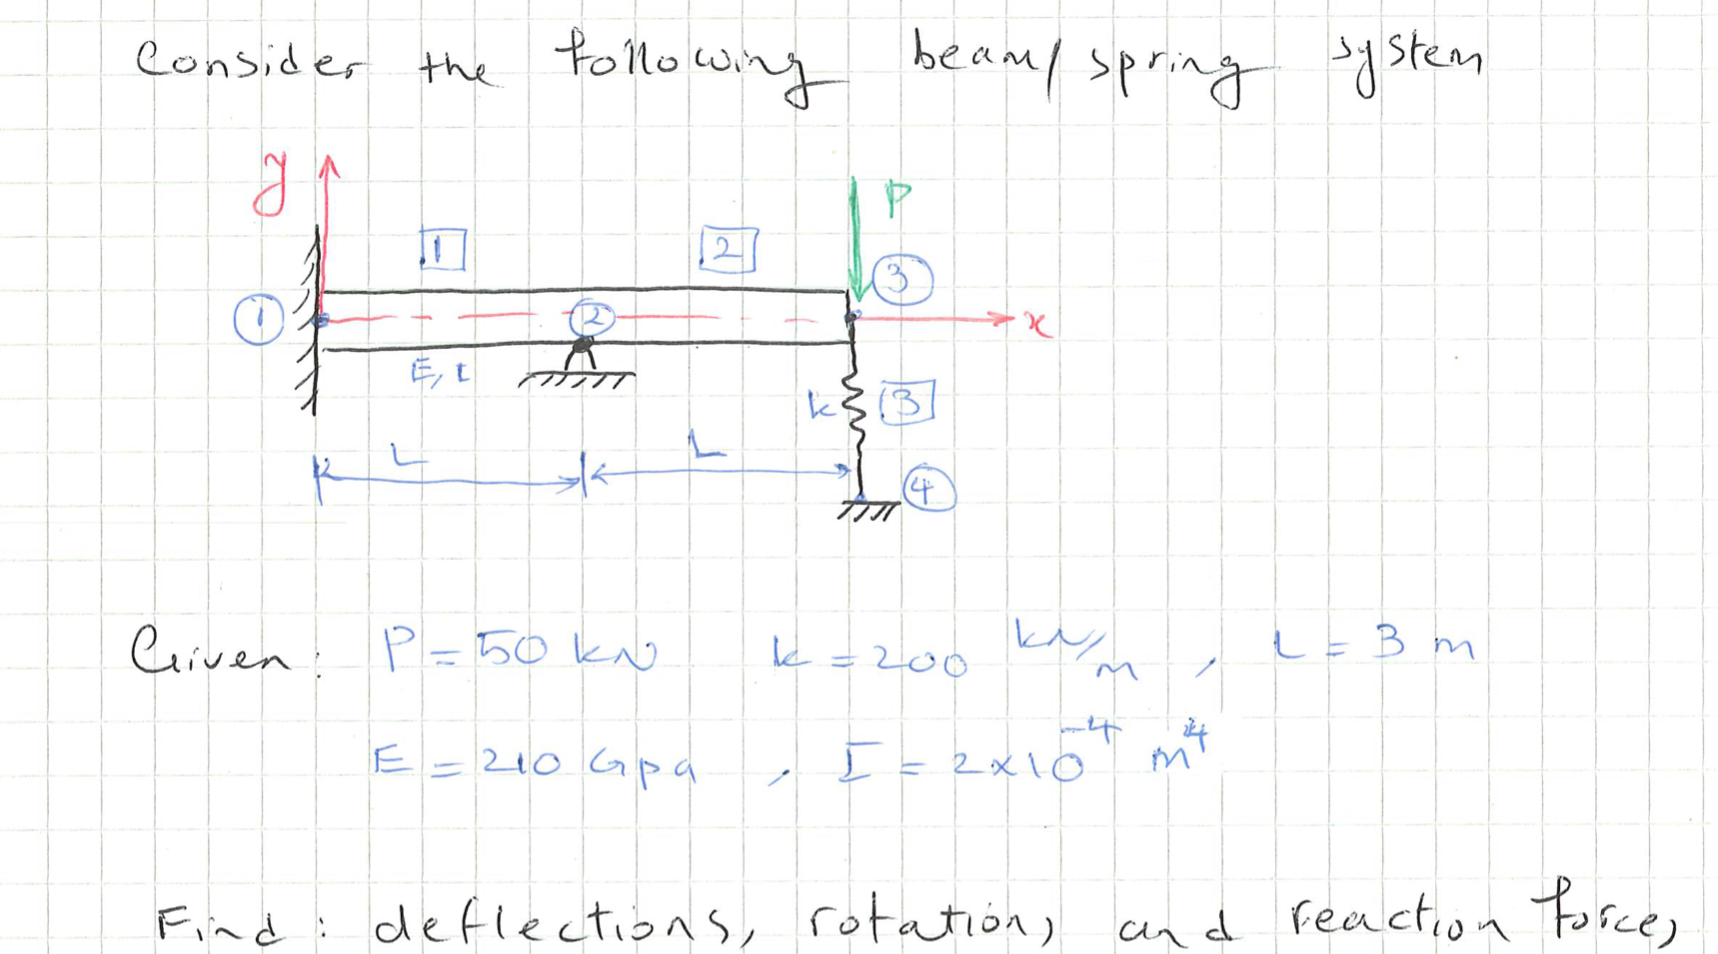 Consider the following beam/spring system
y
P
1
2
3
1
2
x
E, I
k
3
L
L
4
Given: P = 50 kN k = 200 kN/m , L = 3 m
E = 210 Gpa , I = 2×10⁻⁴ m⁴
Find: deflections, rotation, and reaction force,